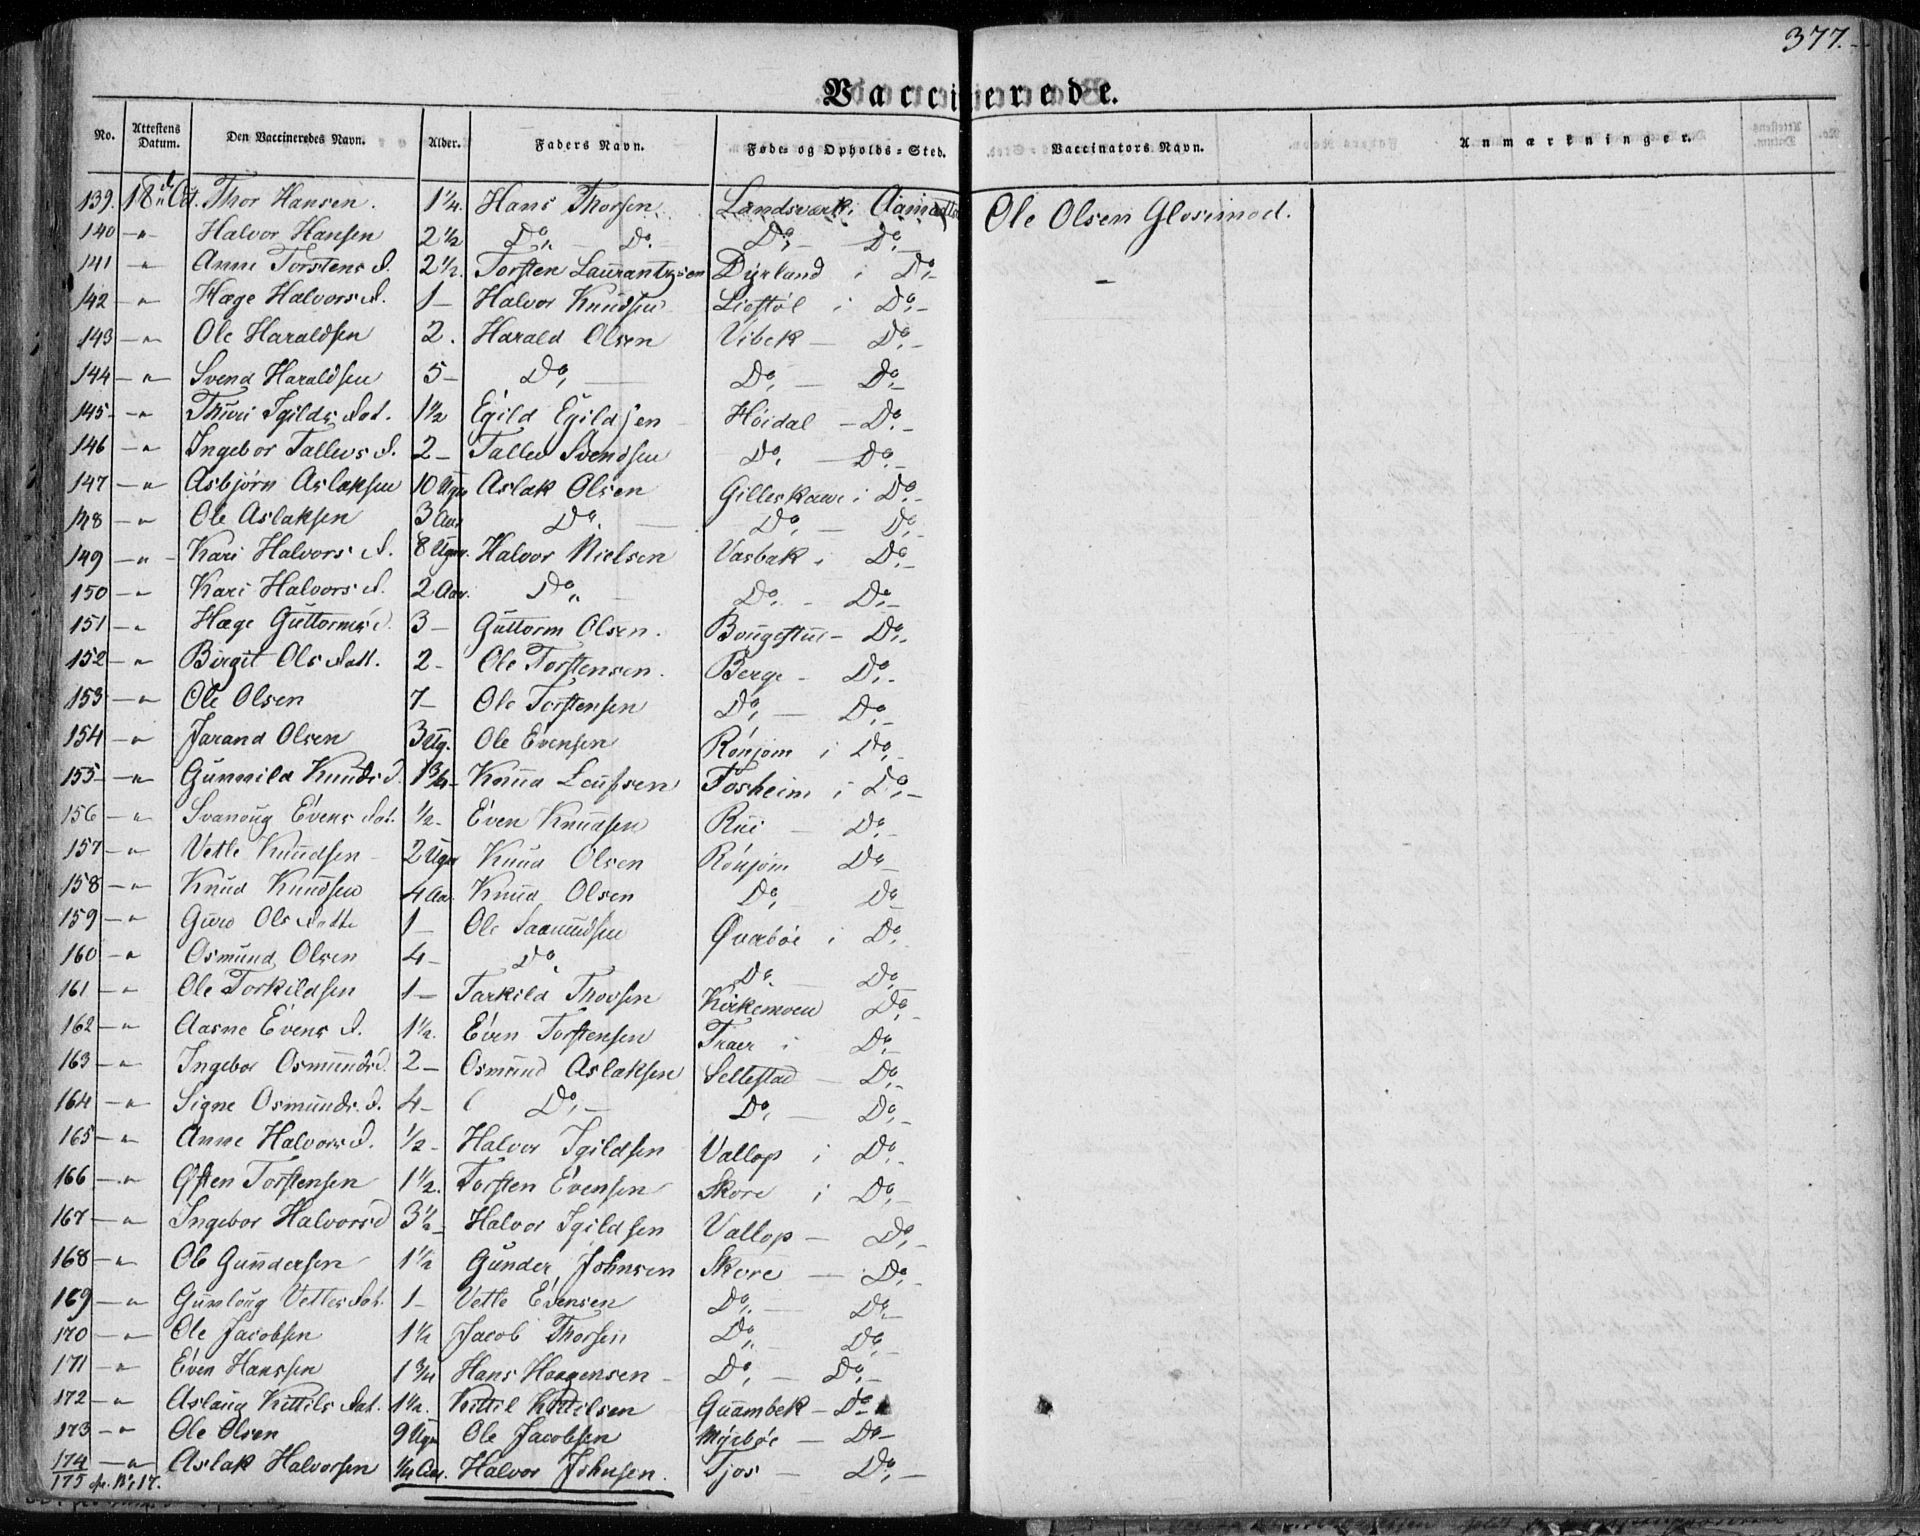 377.
Vaccinerede.
No. Attestens Datum. Den Vaccineredes Navn. Alder. Faders Navn. Føde- og Opholds-Sted. Vaccinators Navn. Anmærkninger.
139. Thor Hansen. 1 1/4. Hans Thorsen. Landsværk i Ole Olsen Glosimod.
140 -"- Halvor Hansen 2 1/2 Do. - Do. - Do. - Do. -
141 -"- Anne Torstens d. 2 1/2. Torsten Laurantzsen Dyrland i Do. -
142 -"- Hæge Halvors d. 1 - Halvor Knudsen Liestøl i Do. -
143 -"- Ole Haraldsen 2. Harald Olsen Vibek - Do. -
144 -"- Svend Haraldsen 5 - Do. - Do. - Do. -
145 -"- Thuri Igilds dat. 1 1/2 Egild Egildsen Höidal - Do. -
146 -"- Ingebor Tallevs d. 2 - Tallev Svendsen Do. - Do. -
147 -"- Asbjörn Aslaksen 10 Uger Aslak Olsen i Do. -
148 -"- Ole Aslaksen 3 Aar Do. - Do. - Do. -
149 -"- Kari Halvors d. 8 Uger. Halvor Nielsen Vasbak i Do. -
150 -"- Kari Halvors d. 2 Aar. Do. - Do. - Do. -
151 -"- Hæge Guttorms d. 3 - Guttorm Olsen. - Do. -
152 -"- Birgit Ols datt. 2 - Ole Torstensen. Berge - Do. -
153 -"- Ole Olsen 7 - Ole Torstensen Do. - Do. -
154 -"- Jarand Olsen 3 Ug. Ole Evensen Rönjom i Do. -
155 -"- Gunnild Knuds d. 1 3/4 - Knud Fosheim i Do. -
156 -"- Svanoug Evens dat. 1/2 - Even Knudsen Rui - Do. -
157 -"- Vetle Knudsen - 2 Uger Knud Olsen Rönjom Do -
158 -"- Knud Knudsen 4 Aar. Knud Olsen Do. Do -
159 -"- Guro Ols datte 1 - Ole Saamundsen Øverböe i Do.
160 -"- Osmund Olsen 4 - Do. Do. Do. -
161 -"- Ole Torkildsen 1 - Tarkild Thovsen Kirkemoen Do. -
162 -"- Aasne Evens d. 1 1/2. Even Torstensen Traer i Do. -
163 -"- Ingebor Osmunds d. 2 - Osmund Aslaksen Seltestad - Do. -
164 -"- Signe Osmunds d. 4 - Do. - Do. - Do. -
165 -"- Anne Halvors d. 1/2 - Halvor Igildsen Vallop i Do. -
166 -"- Østen Torstensen 1 1/2. Torsten Evensen Skore i Do. -
167 -"- Ingebor Halvors d 3 1/2 - Halvor Igildsen Vallop - Do. -
168 -"- Ole Gundersen 1 1/2 Gunder Johnsen Skore - Do. -
169 -"- Gunloug Vetles dat. 1 - Vetle Evensen Do. - Do. -
170 -"- Ole Jacobsen 1 1/2 Jacob Thorsen Do. Do. -
171 -"- Even Hanssen 1 3/4 Hans Haagensen - Do. - Do. -
172 -"- Aslaug Kittils dat. 1 1/2. Kittil Kittilsen Quambek - Do.
173 -"- Ole Olsen 9 Uger Ole Jacobsen Myrböe - Do -
174 -"- Aslak Halvorsen 1/4 Aar. Halvor Johnsen. Tjos - Do. -
175